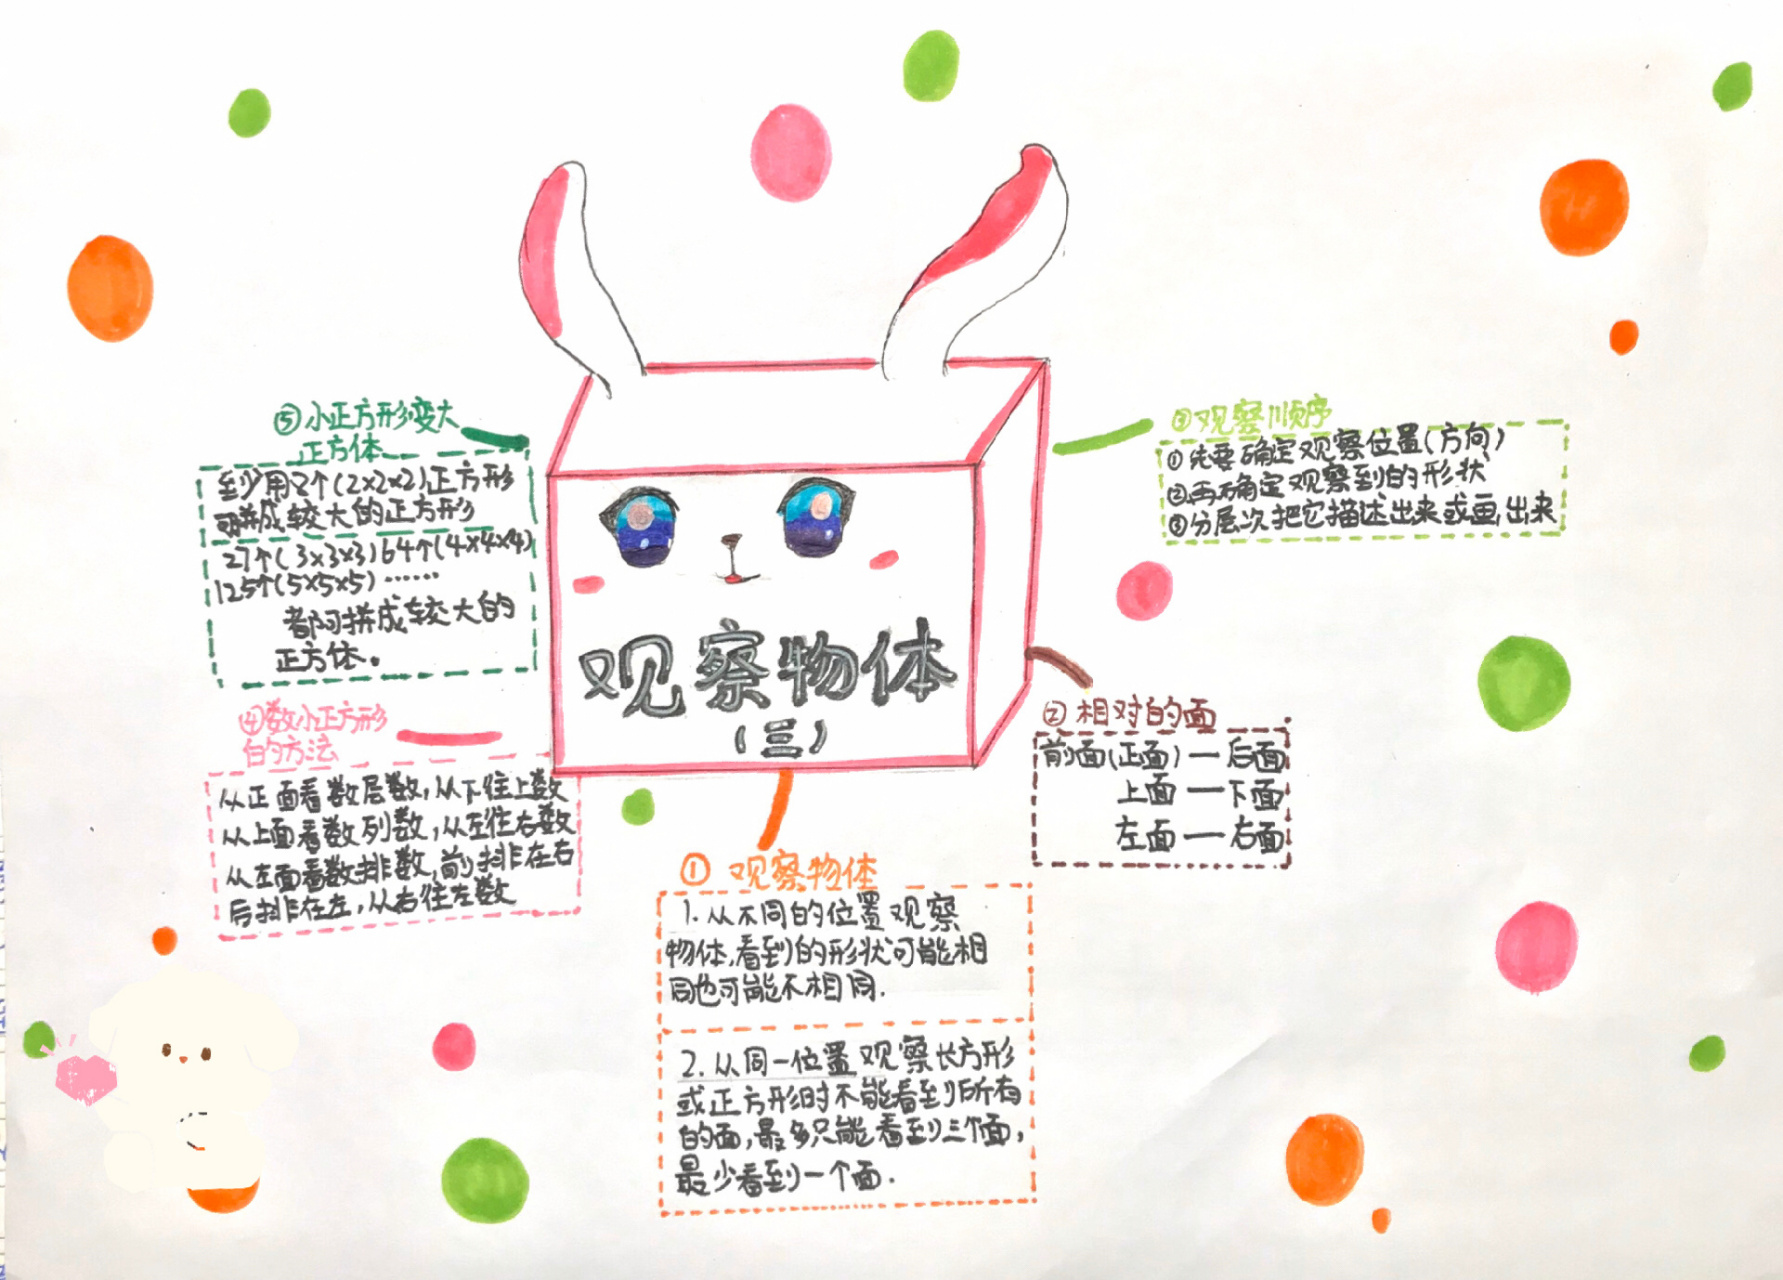 观察物体
(三)
① 观察物体
1. 从不同的位置观察
物体,看到的形状可能相
同也可能不相同.
2. 从同一位置观察长方形
或正方形时不能看到所有
的面,最多只能看到三个面,
最少看到一个面.
② 相对的面
前面(正面)—后面
上面—下面
左面—右面
③观察顺序
①先要确定观察位置(方向)
②再确定观察到的形状
③分层次把它描述出来或画出来
④数小正方形
的方法
从正面看数层数,从下往上数
从上面看数列数,从左往右数
从左面看数排数,前排在右
后排在左,从右往左数
⑤小正方形变大
正方体
至少用2个(2×2×2)正方形
拼成较大的正方形
27个(3×3×3)64个(4×4×4)
125个(5×5×5)……
都可拼成较大的
正方体。